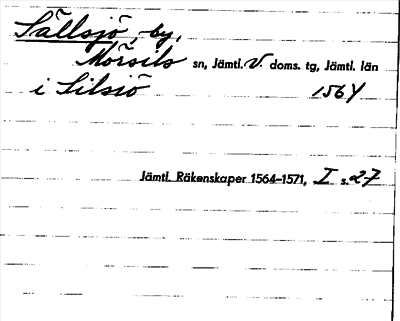 Sällsjö, by,
Mörsils sn, Jämtl. V. doms. tg, Jämtl. län
i Silsiö 1564
Jämtl. Räkenskaper 1564–1571, I s. 27